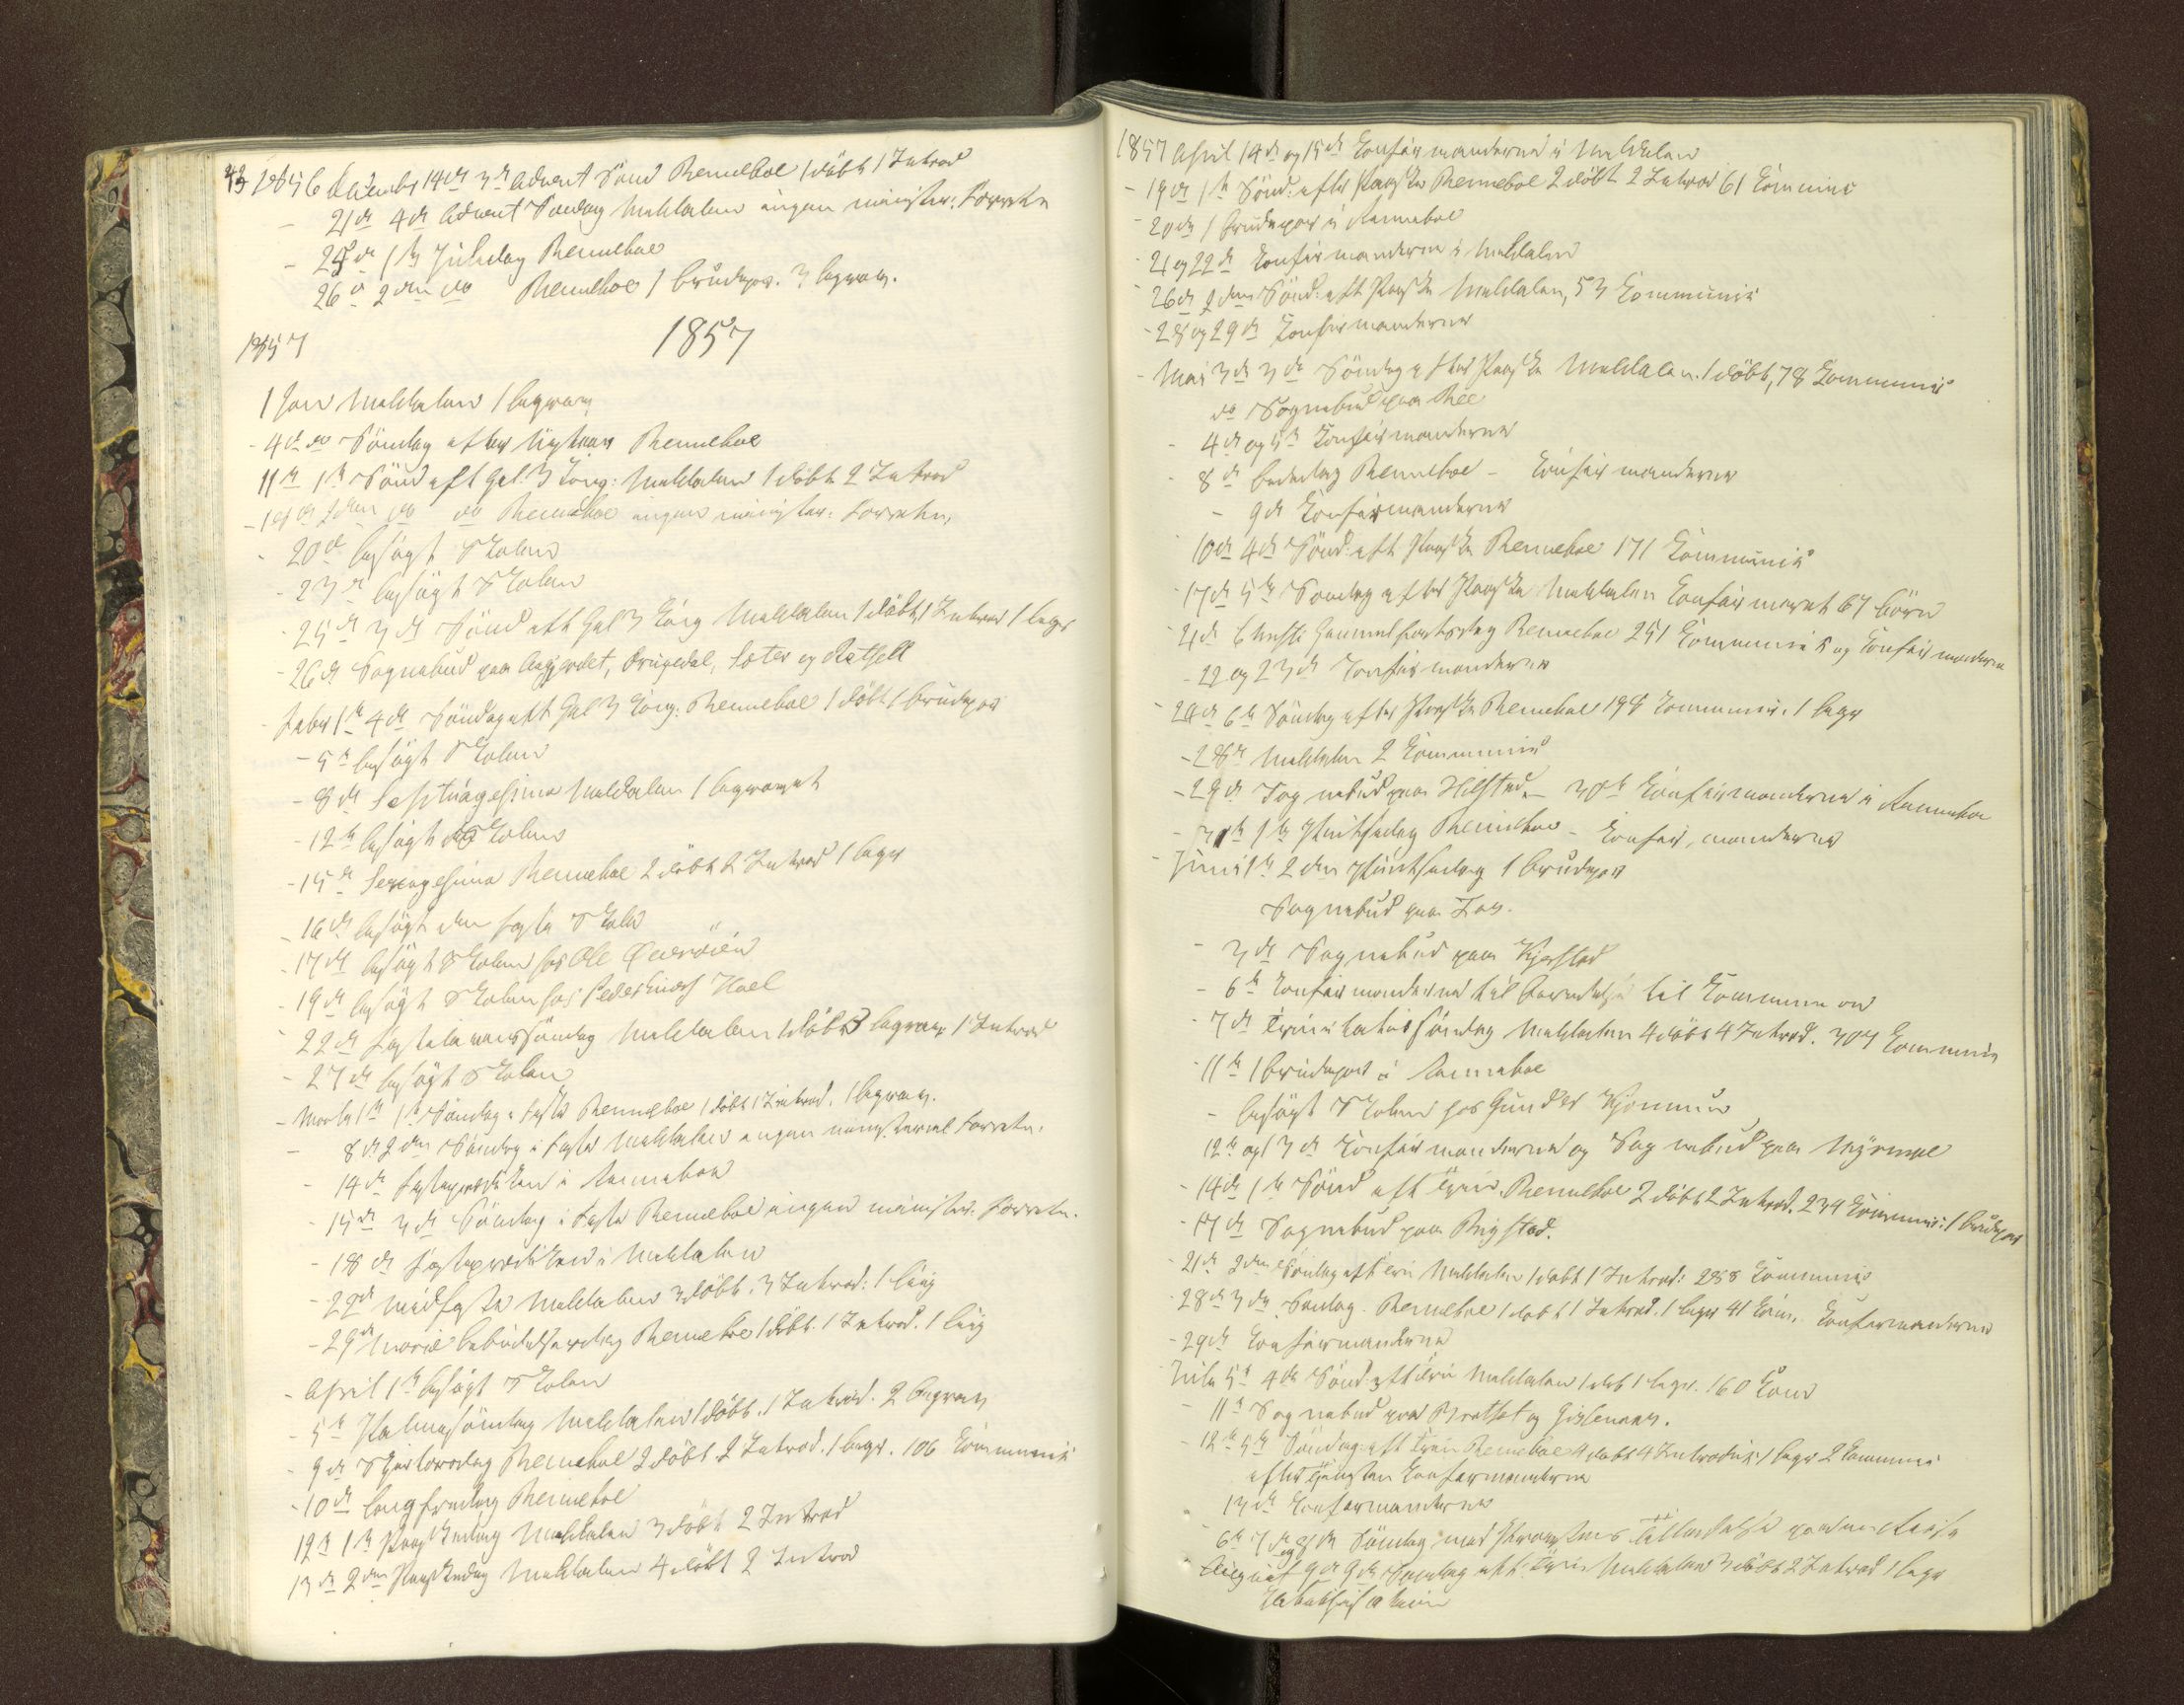 1856 December 14de 3de Advent Sønd Renneboe 1 døbt 1 Introd
- 21de 4de Advent Søndag Meldalen ingen minister. Forretn
- 25de 1ste Juledag Renneboe
26de 2den do Renneboe 1 brudepar. 3 begrav.
1857 1857
1 Jan Meldalen 1 begrav
- 4de do Søndag efter Nytaar Renneboe
11te 1ste Sønd eft Hel. 3 Kong: Meldalen 1 døbt 2 Introd
- 18de 2den do do Renneboe ingen minister: Forretn,
- 20de besøgt Skolen
- 23de besøgt Skolen
- 25de 3de Sønd eft Hel 3 Kong Meldalen 1 døbt, 1 Introd 1 begr
- 26de Sognebud paa, Drugedal, Sæter og
Febr 1ste 4de Søndag eft Hel 3 Kong: Renneboe 1 døbt 1 brudepar
- 5te besøgt Skolen
- 8de Septuagesima Meldalen 1 begravet
- 12te besøgt Skolen
- 15de Sexagesima Renneboe 2 døbt 2 Introd 1 begr
- 16de besøgt den faste Skole
- 17de besøgt Skolen hos Ole
- 19de besøgt Skolen hos Peder Hoel
- 22de Fastelavnssøndag Meldalen 1 døbt 3 begrav 1 Introd
- 27de besøgt Skolen
- Marts 1ste 1ste Søndag i Faste Renneboe 1 døbt 1 Introd. 1 begrav.
- 8de 2den Søndag i Faste Meldalen ingen ministerial Forretn.
- 14de Fasteprædiken i Renneboe
- 15de 3de Søndag i Faste Renneboe ingen minister. Forretn.
- 18de Fasteprædiken i Meldalen
- 22de Midfaste Meldalen 3 døbt. 3 Introd: 1 Liig
- 29de Mariæ Bebudelsesdag Renneboe 1 døbt. 1 Introd. 1 Liig
- April 1ste besøgt Skolen
- 5te Palmesøndag Meldalen 1 døbt. 1 Introd. 2 begrav
- 9de Skjærtorsdag Renneboe 2 døbt. 2 Introd. 1 begr. 106 Kommuni
- 10de Langfredag Renneboe
12te 1ste Paaskedag Meldalen 3 døbt 2 Introd
13de 2den Paaskedag Meldalen 4 døbt 2 Introd
1857 April 14de og 15de Konfirmanderne i Meldalen
- 19de 1ste Sønd: efter Paaske Renneboe 2 døbt 2 Introd 61 Kommuni
- 20de 1 brudepar i Renneboe
- 21 og 22de Konfirmanderne i Meldalen
- 26de 2den Sønd: eft Paaske Meldalen, 53 Kommuni
- 28 og 29de Konfirmanderne
- Mai 3de 3de Søndag efter Paaske Meldalen. 1 døbt, 78 Kommuni
do Sognebud paa Ree
- 4de og 5te Konfirmanderne
- 8de Bededag Renneboe - Konfirmanderne
- 9de Konfirmanderne
10de 4de Sønd: eft Paaske Renneboe 171 Kommuni
- 17de 5te Søndag efter Paaske Meldalen Konfirmeret 67 Børn
- 21de Christi Himmelfartsdag Renneboe 251 Kommuni og Konfirmanderne
- 22 og 23de Konfirmanderne
- 24de 6te Søndag efter Paaske Renneboe 198 Kommuni. 1 begr
- 28de Meldalen 2 Kommuni
- 29de Sognebud paa Hilstad - 30te Konfirmanderne i Rennebo
- 31te 1ste Pintsedag Rennebo - Konfirmanderne
Juni 1ste 2den Pintsedag 1 brudepar
Sognebud paa
- 3de Sognebud paa Kjerstad
- 6te Konfirmanderne til Forberedelse til Kommunion
- 7de Trinitatis Søndag Meldalen 4 døbt 4 Introd. 307 Kommuni
- 11te 1 brudepar i Rennebo
- besøgt Skolen hos Gunder
12te og 13de Konfirmanderne og Sognebud paa Myrmoe
- 14de 1ste Sønd eft Trin Rennebo 2 døbt 2 Introd. 234 Kommuni: 1 brudepar
- 17de Sognebud paa Rigstad.
- 21de 2den Søndag eft Trin Meldalen 1 døbt 1 Introd: 258 Kommuni
- 28de 3die Søndag. Rennebo 1 døbt 1 Introd. 1 begr 41 Kom. Konfirmanderne
- 29de Konfirmanderne
Juli 5te 4de Sønd: eft Trin Meldalen 1 døb 1 begr. 160 Kom
- 11te Sognebud paa og
- 12te 5te Søndag eft Trin Rennebo 4 døbt 4 Introduc: 1 begr 2 Kommuni
efter Konfirmanderne
13de Konfirmanderne
- 6te 7de og 8de Søndag med Provstens Tilladelse paa en Reise
August 9de 9de Søndag eft Trin Meldalen 3 døbt 2 Introd 1 begr